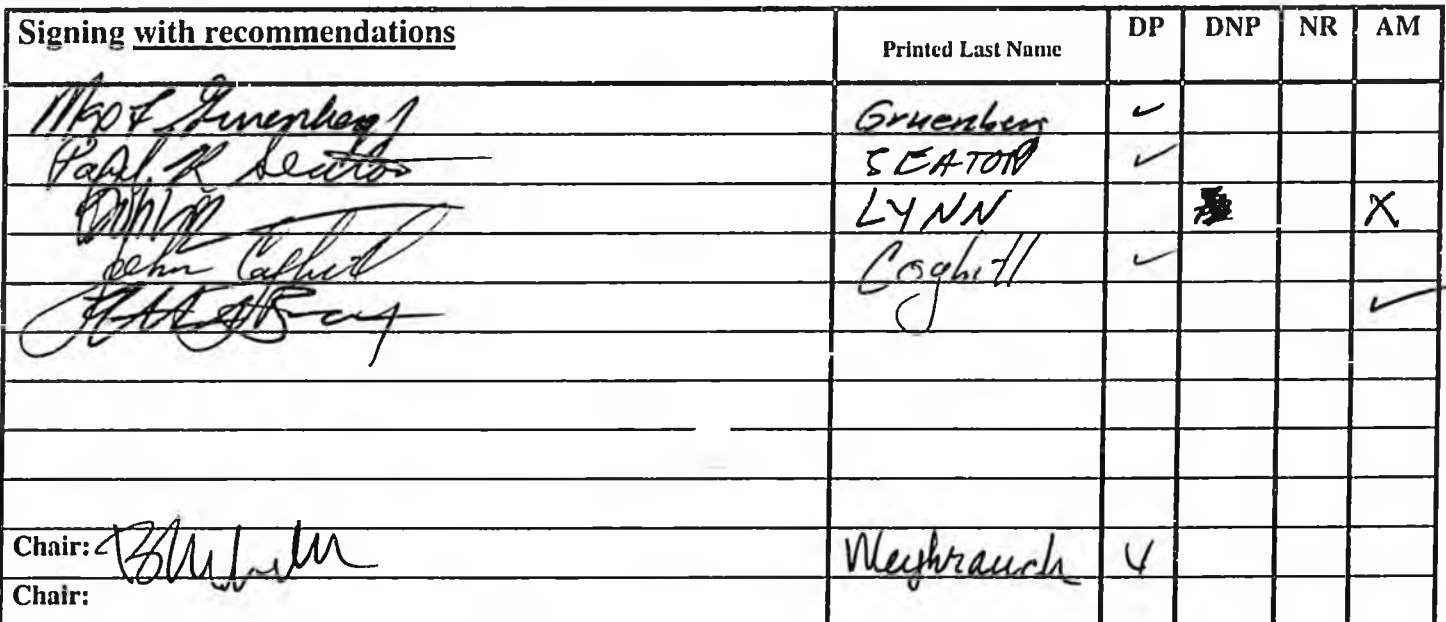 Signing with recommendations Printed Last Name DP DNP NR AM
Gruenberg ✓
Paul K Seaton SEATON ✓
LYNN X
John Coghill Coghill ✓
✓
Chair: Weyhrauch
Chair: